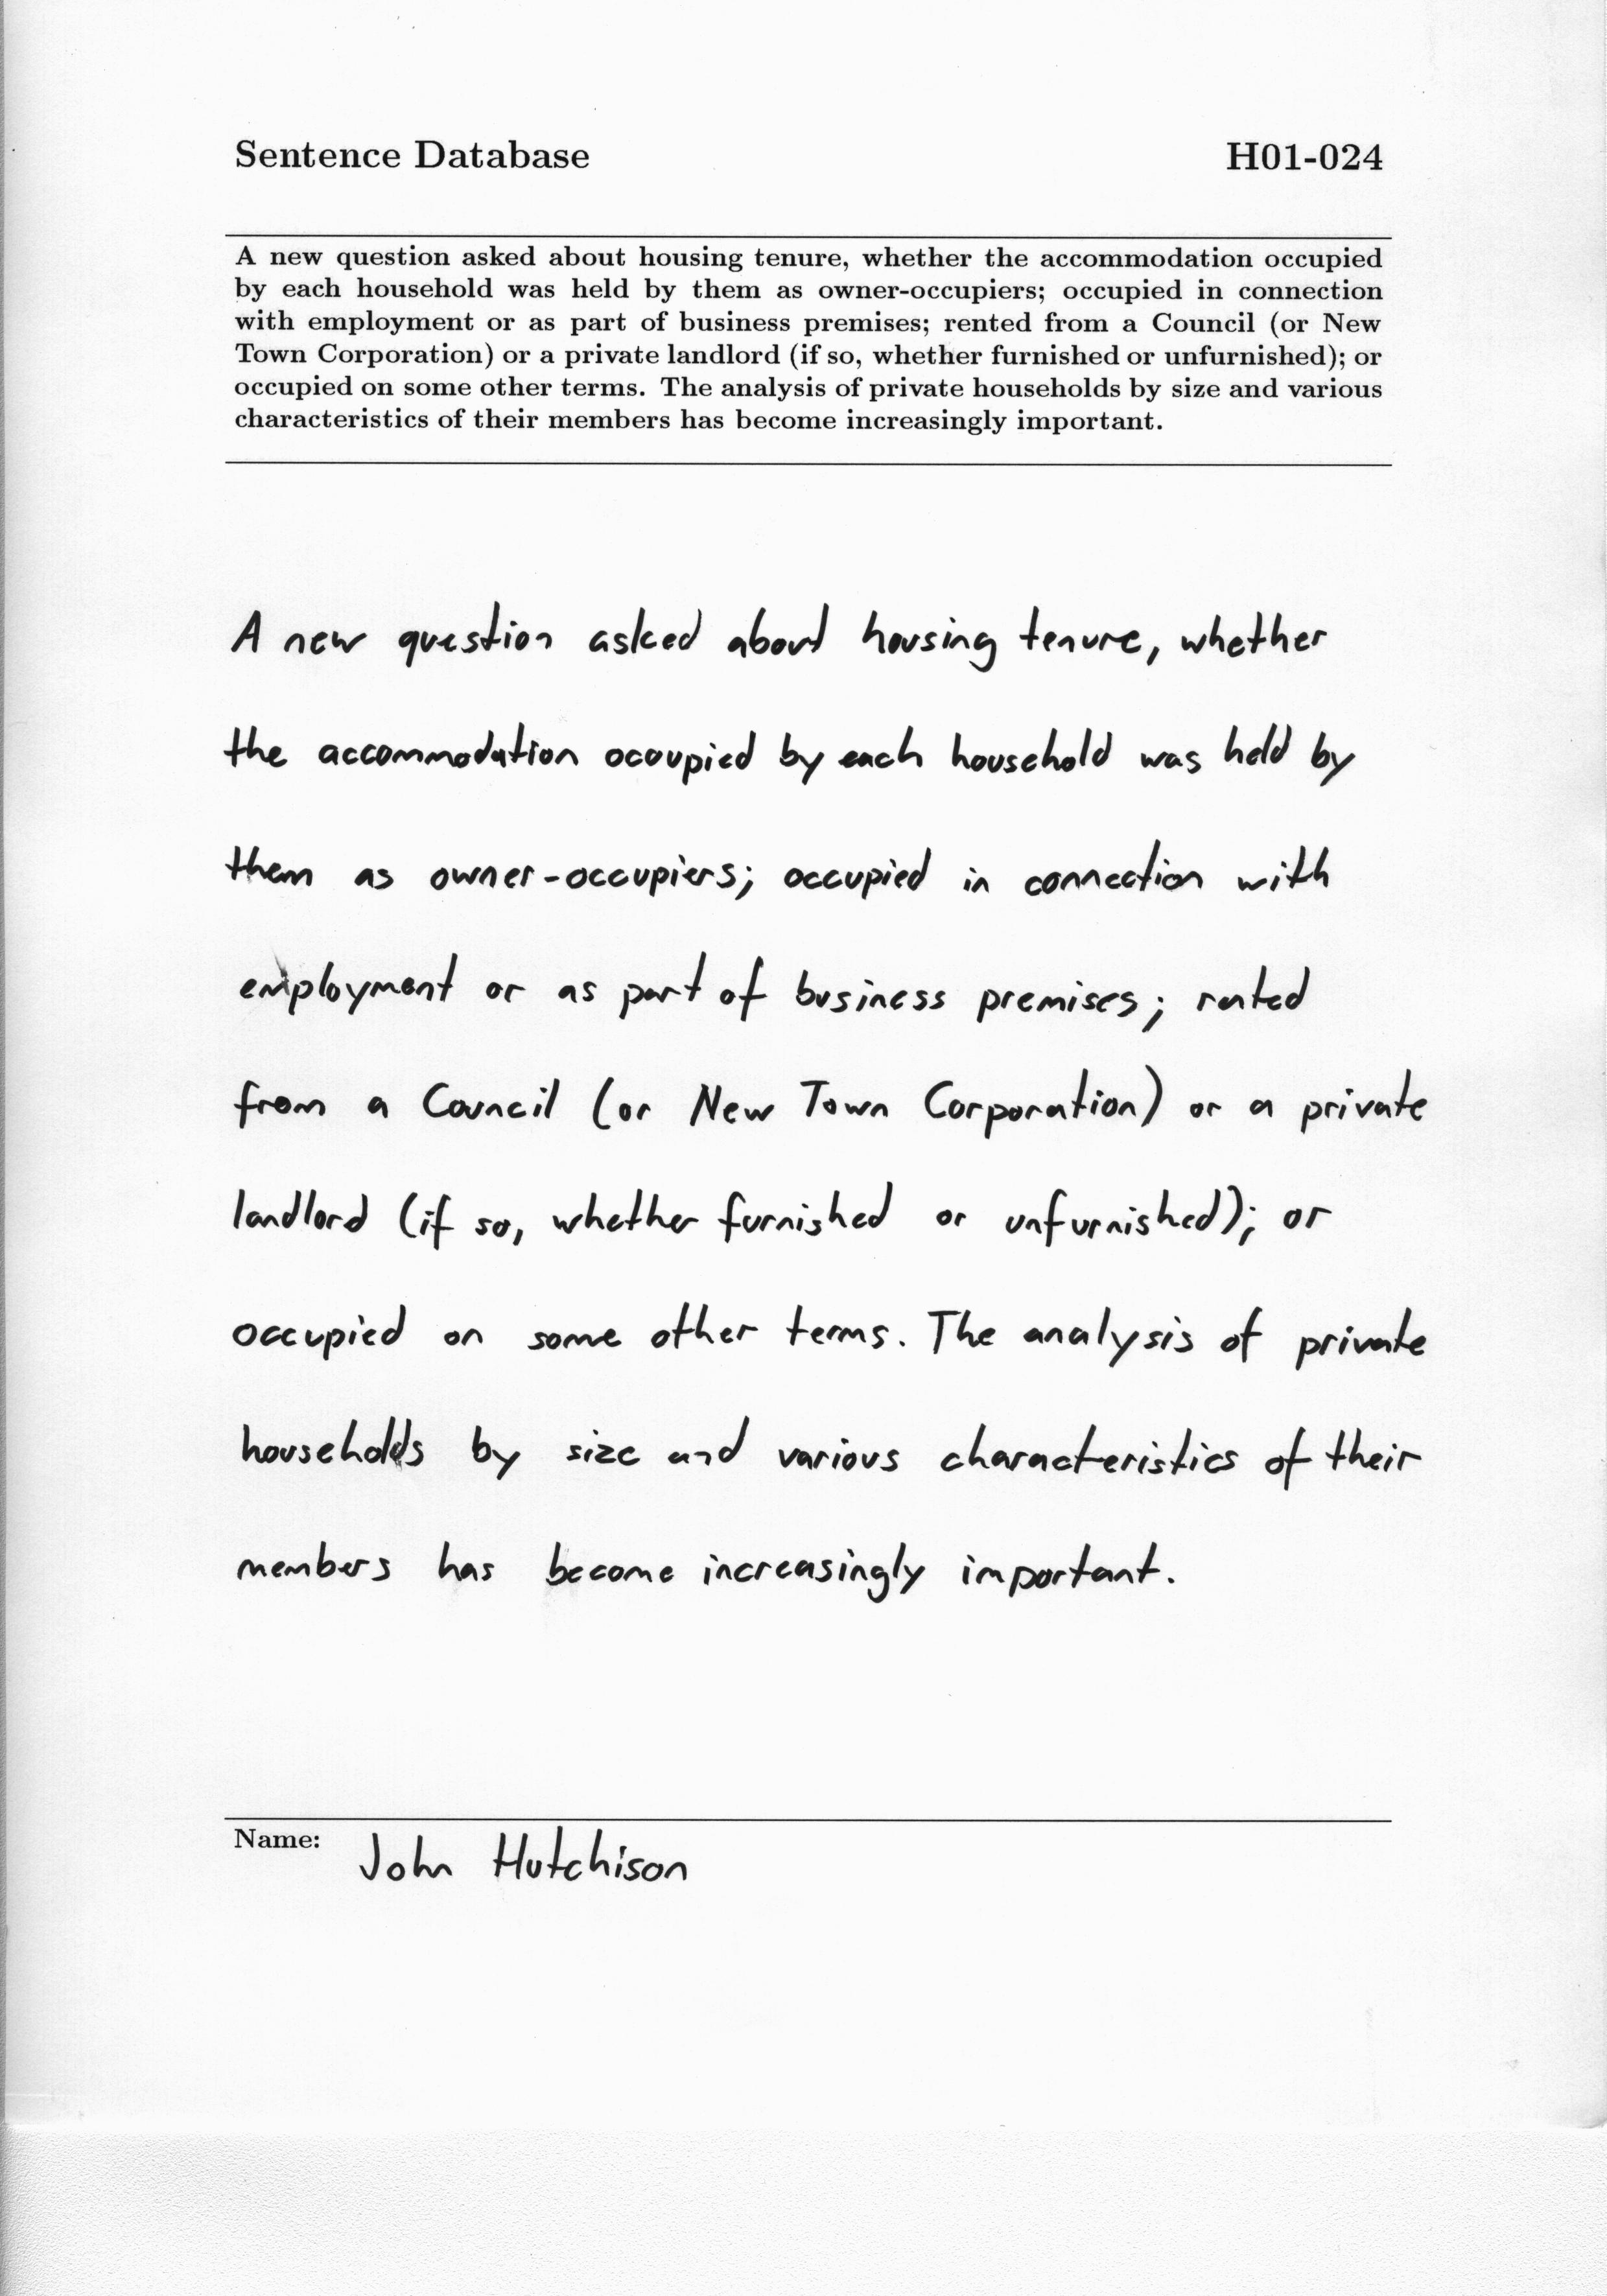 Sentence Database H01-024
A new question asked about housing tenure, whether the accommodation occupied
by each household was held by them as owner-occupiers; occupied in connection
with employment or as part of business premises; rented from a Council (or New
Town Corporation) or a private landlord (if so, whether furnished or unfurnished); or
occupied on some other terms. The analysis of private households by size and various
characteristics of their members has become increasingly important.
A new question asked about housing tenure, whether
the accommodation occupied by each household was held by
them as owner-occupiers; occupied in connection with
employment or as part of business premises; rented
from a Council (or New Town Corporation) or a private
landlord (if so, whether furnished or unfurnished); or
occupied on some other terms. The analysis of private
households by size and various characteristics of their
members has become increasingly important.
Name: John Hutchison